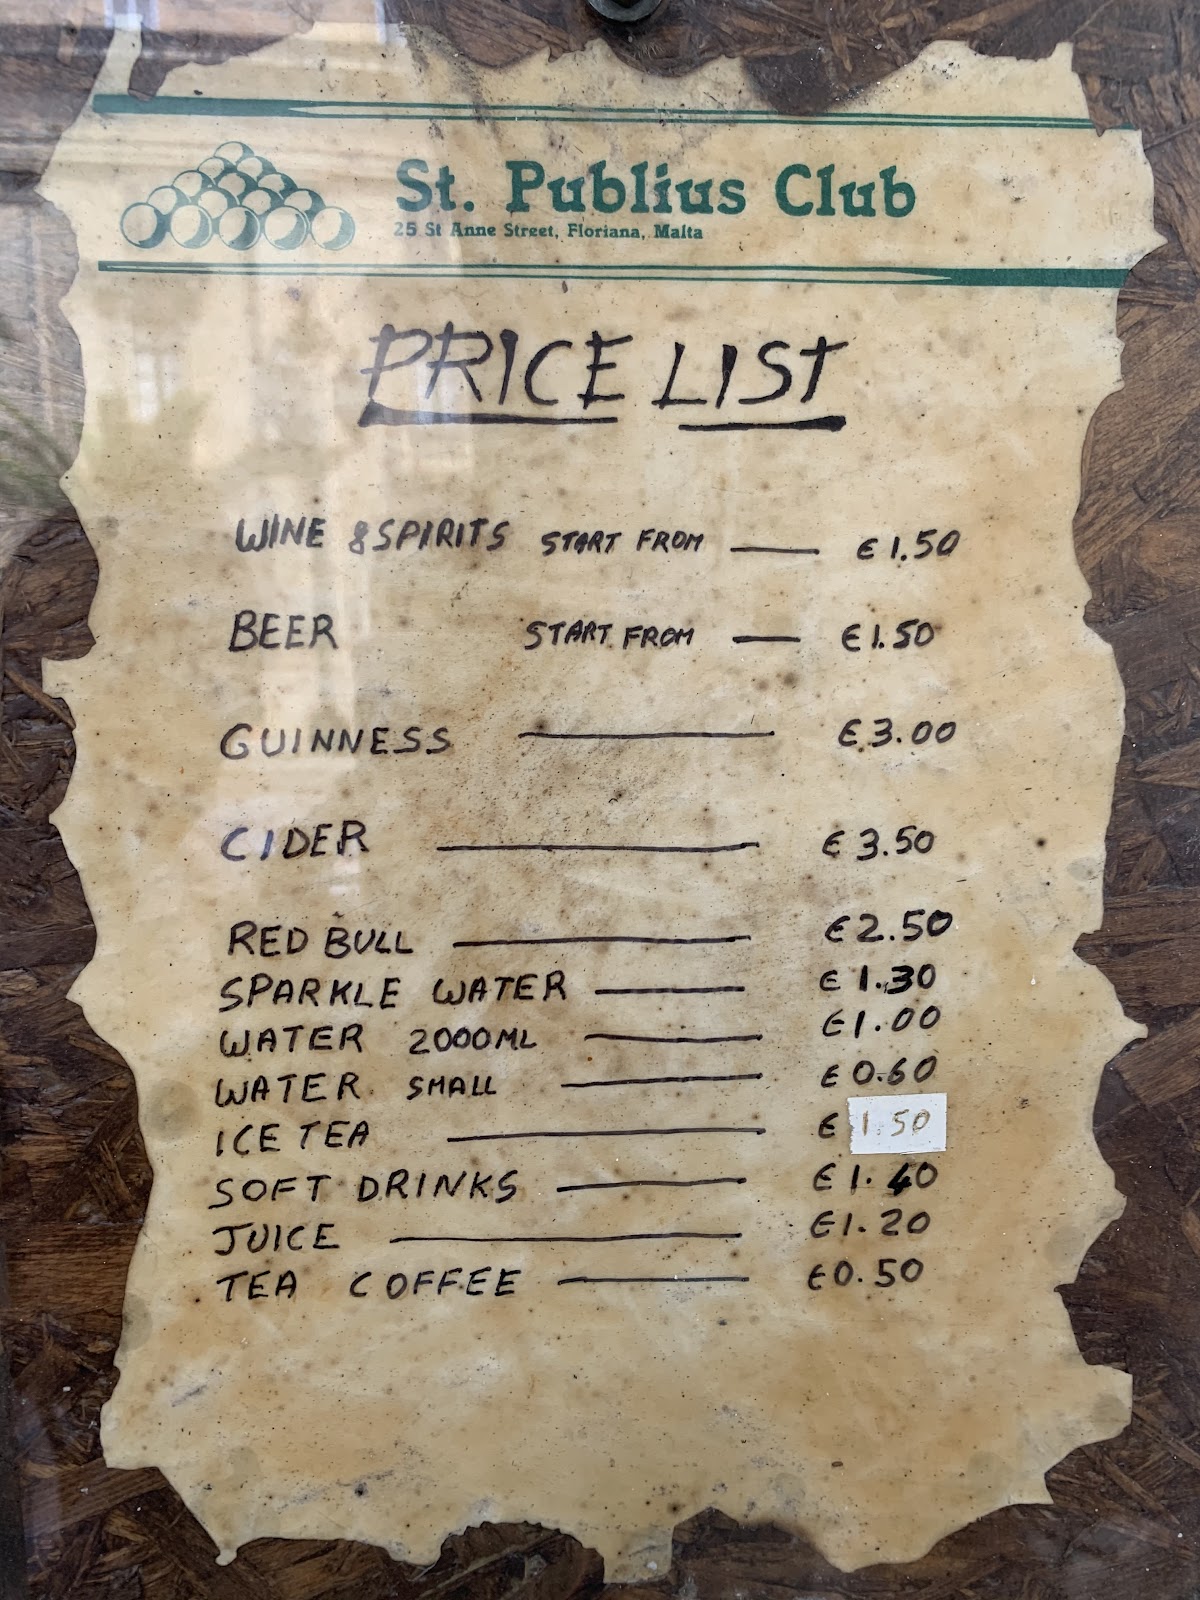 St. Publius Club
25 St Anne Street, Floriana, Malta
PRICE LIST
WINE & SPIRITS START FROM — € 1.50
BEER START FROM — € 1.50
GUINNESS — € 3.00
CIDER — € 3.50
RED BULL — € 2.50
SPARKLE WATER — € 1.30
WATER 2000ML — € 1.00
WATER SMALL — € 0.60
ICE TEA — € 1.50
SOFT DRINKS — € 1.40
JUICE — € 1.20
TEA COFFEE — € 0.50